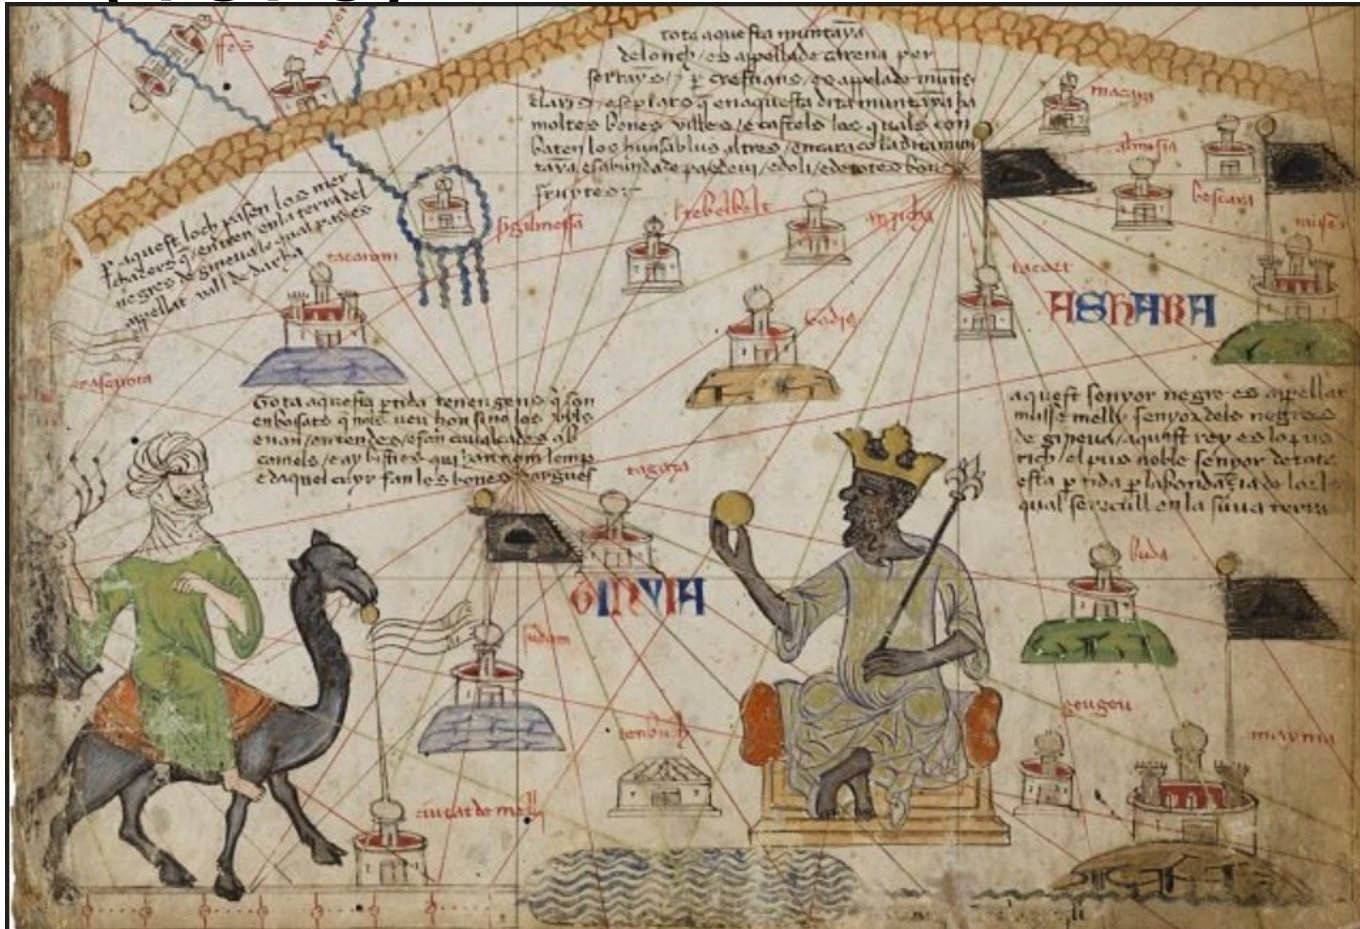 fes
tota aquesta muntaya
de lonch / es appellade carena per
serrayns / & p crestians / es appelade muns
claris / e sepiats q en aquesta dita muntaya ha
moltes bones villes / e castels los quals con
baten los huns ab lus altres / encara co la dita mun
taya es abunda de pa e de vi / e doli / e de totes bones
fruytes
p aquest loch pasen los mer
chaders q entren en la terra del
negres de gineua lo qual pas es
appellat vall de darha
sigilmessa
tacorom
tebelbelt
almosia
biscara
tacort
ASHARA
Tota aquesta ptida tenen gens q son
enbosats q nols veu hom sino los uyls
e uan en tendes / e fan caualcades ab
camels / e ay bisties qui han nom lemp
e daquel cuyr fan les bones dargues
aquest senyor negre es appellat
musse melly senyor dels negres
de gineua / aquest rey es lo pus
rich / el pus noble senyor de tota
esta ptida p labondazia de lor lo
qual se recull en la suua terra
tagaza
GINYIA
sudam
buda
tenbuch
geugeu
mayma
ciutat de melly